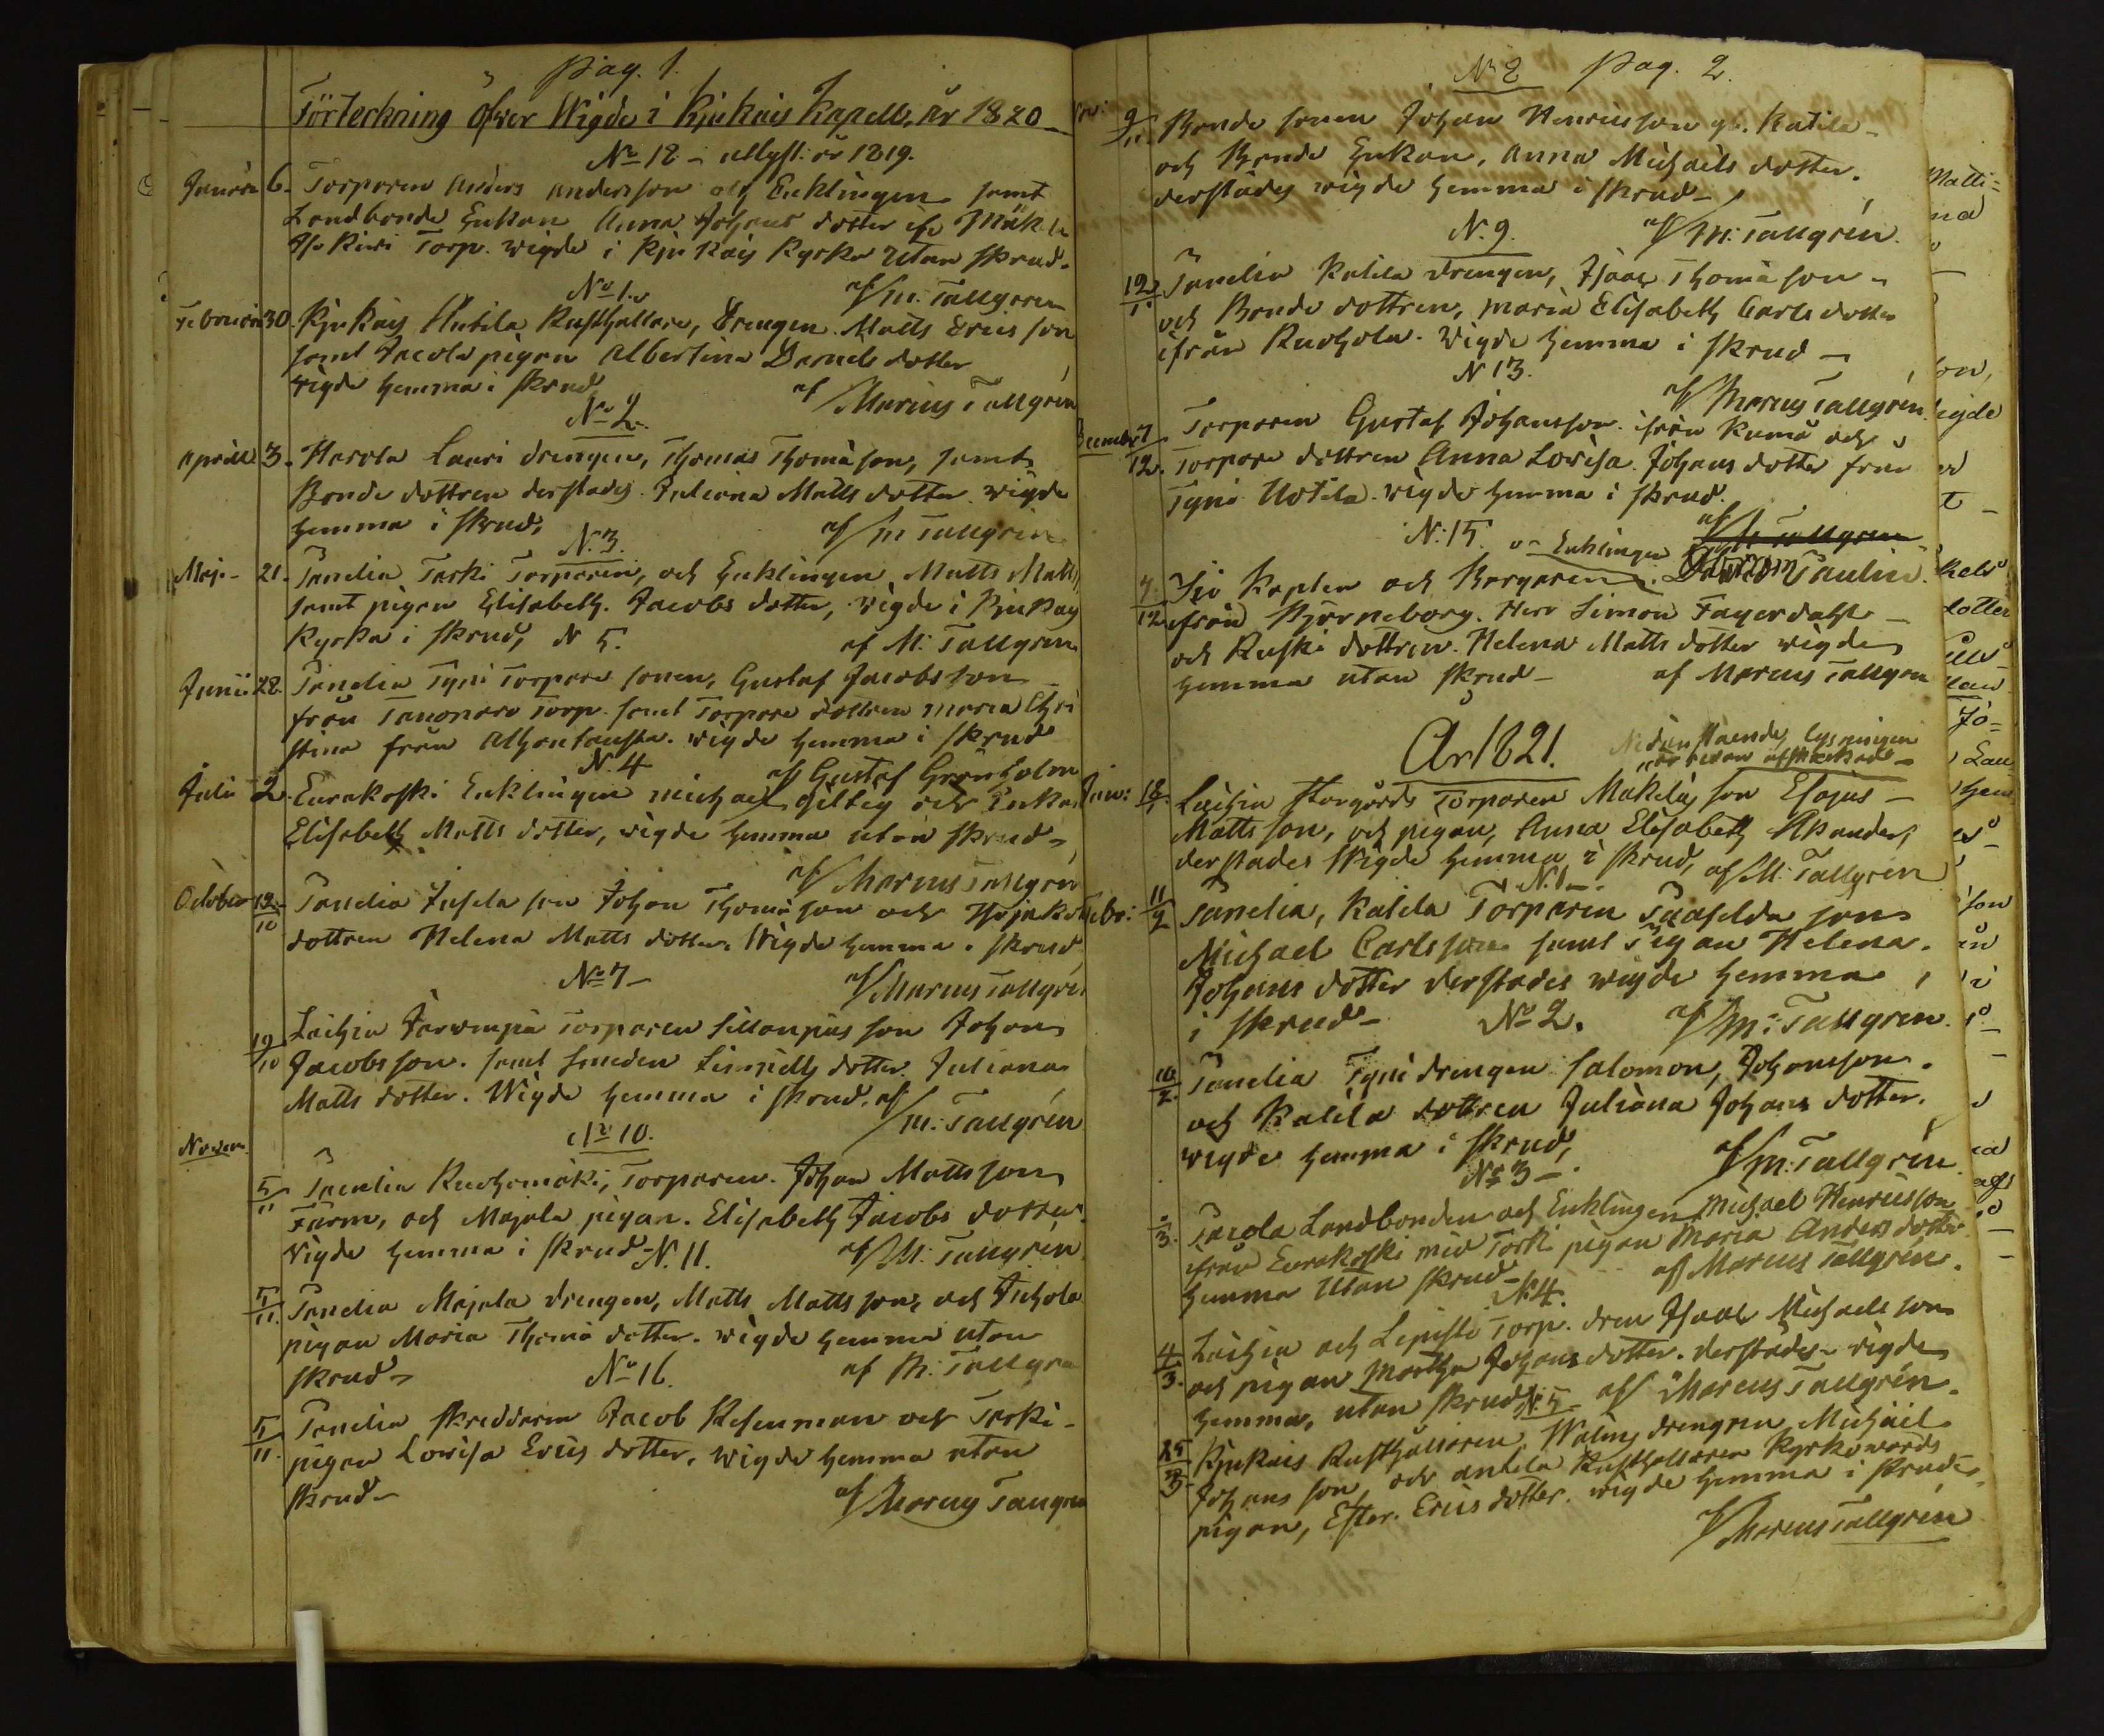 Pag. 1.
Förteckning öfver Wigde i Kjukais Kapell, År 1820
No 18 - utlyst. år 1819.
Januari 6. Torparen Anders Andersson och Enklingen samt
Landbonde Enkan Anna Johans dotter Mäkelä
Kiwi Torp. wigde i Kjukais Kyrka utan skrud.
No 1. af M: Tallgren
Februari 30. Kjukais Anttila Rusthållare, Drengen Matts Erics son
samt Jacola pigan Albertina Daniels dotter
wigde hemma i skrud, af Marcus Tallgrén
No 2.
Aprill 3. Harola Lauri drengen, Thomas Thomä son, samt
Bonde dottren derstädes Juliana Matts dotter wigde
hemma i skrud, af M Tallgrén
N. 3.
Maji 21. Panelia Taski Torparen, och Enklingen Matts Matts
samt pigan Elisabeth Jacobs dotter, wigde i Kjukais
Kyrka i skrud, N 5. af M: Tallgren
Junii 28. Panelia Tyni Torpare sonen, Gustaf Jacobs son
från Torp. samt Torpare dottren Maria Chri
stina från wigde hemma i skrud
N. 4 af Gustaf Grönholm
Julii 2. Eurakoski Enklingen Michael Gillig och Enkan
Elisabeth Matts dotter, wigde hemma utan skrud
af Marcus Tallgrén
October 12/10 Panelia Jusela son Johan Thomä son och
dottren Helena Matts dotter. Wigde hemma i skrud
No 7 af Marcus Tallgrén
19/10 Laihia Torparen son Johan
Jacobs son. samt Smeden dotter Juliana
Matts dotter. Wigde hemma i skrud. af
M: Tallgrén
Novem. No 10.
5/11 Panelia Ruohomäki, Torparen Johan Matts son
Färm, och Majala pigan. Elisabeth Jacobs dotter.
Wigde hemma i skrud N. 11. af M: Tallgrén
5/11. Panelia Majala drengen, Matts Matts son, och
pigan Maria Thomä dotter. wigde hemma utan
skrud No 16. af M: Tallgren
5/11 Panelia skreddaren Jacob Rosenman och Taski
pigan Lovisa Erics dotter, wigde hemma utan
skrud af Marcus Tallgren
No 8 Pag. 2.
Nov: 9/11. Bonde sonen Johan Henricsson Katila
och Bonde Enkan, Anna Michaels dotter.
derstädes wigde hemma i skrud
N. 9. af M: Tallgrén.
12/11 Panelia Katila drengen, Isaac Thomä son
och Bonde dottren, Maria Elisabeth Carls dotter
ifrån Ruohola. Wigde hemma i skrud
N 13. af Marcus Tallgrén.
Decembr 7/12. Torparen Gustaf Johansson ifrån Kumå och
Torpare dottren Anna Lovisa Johans dotter från
Tyni Uotila wigde hemma i skrud.
N: 15. af M Tallgren
o Enklingen Paulin
7/12 Sjö Kapten och Borgaren
ifrån Björneborg. Herr Simon Fagerdahl
och Ruski dottren. Helena Matts dotter wigde
hemma utan skrud af Marcus Tallgren
År 1821. Nedanstående lysningen
Jan: 18/1. Laihia Storgårds Torparen Mäkelä, son Esajas
Matts son, och pigan, Anna Elisabeth
derstades Wigde hemma i skrud, af M: Tallgrén
N. 1
Febr: 11/2 Panelia, Katila Torparen son
Michael Carls son samt Pigan Helena.
Johans dotter derstades wigde hemma
i skrud No 2. af M: Tallgrén.
10/2. Panelia Tyni drengen Salomon, Johansson.
och Katila dottren Juliana Johans dotter.
wigde hemma i skrud, af M: Tallgrén.
No 3
3. Landbonden och Enklingen Michael Henricsson
ifrån Eurakoski med Torki pigan Maria Anders dotter
hemma utan skrud N: 4. af Marcus Tallgrén.
4/3. Laihia och Lepistö Torp. dren Isaac Michaels son
och pigan Martha Johans dotter. derstädes wigde
hemma, utan skrud N: 5 af Marcus Tallgrén.
25/3. Kjukais Rusthållaren drengen Michael
Johans son, och Antila Rusthållaren Kyrkowärds
pigan, Ester. Erics dotter. wigde hemma i skrud
af Marcus Tallgrén